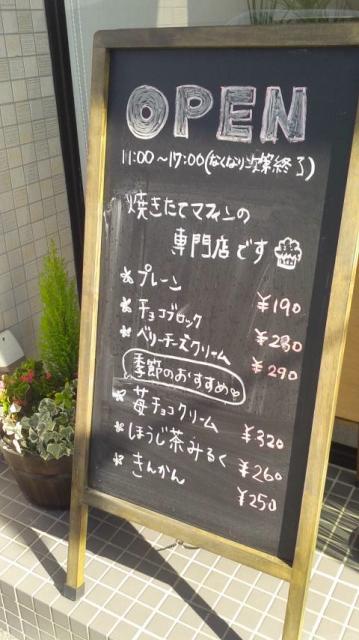 OPEN
11:00~17:00(なくなり次第終了)
焼きたてマフィンの
専門店です
*プレーン ¥190
*チョコブロック ¥230
*ベリーチーズクリーム ¥290
季節のおすすめ
*苺チョコクリーム ¥320
*ほうじ茶みるく ¥260
*きんかん ¥250